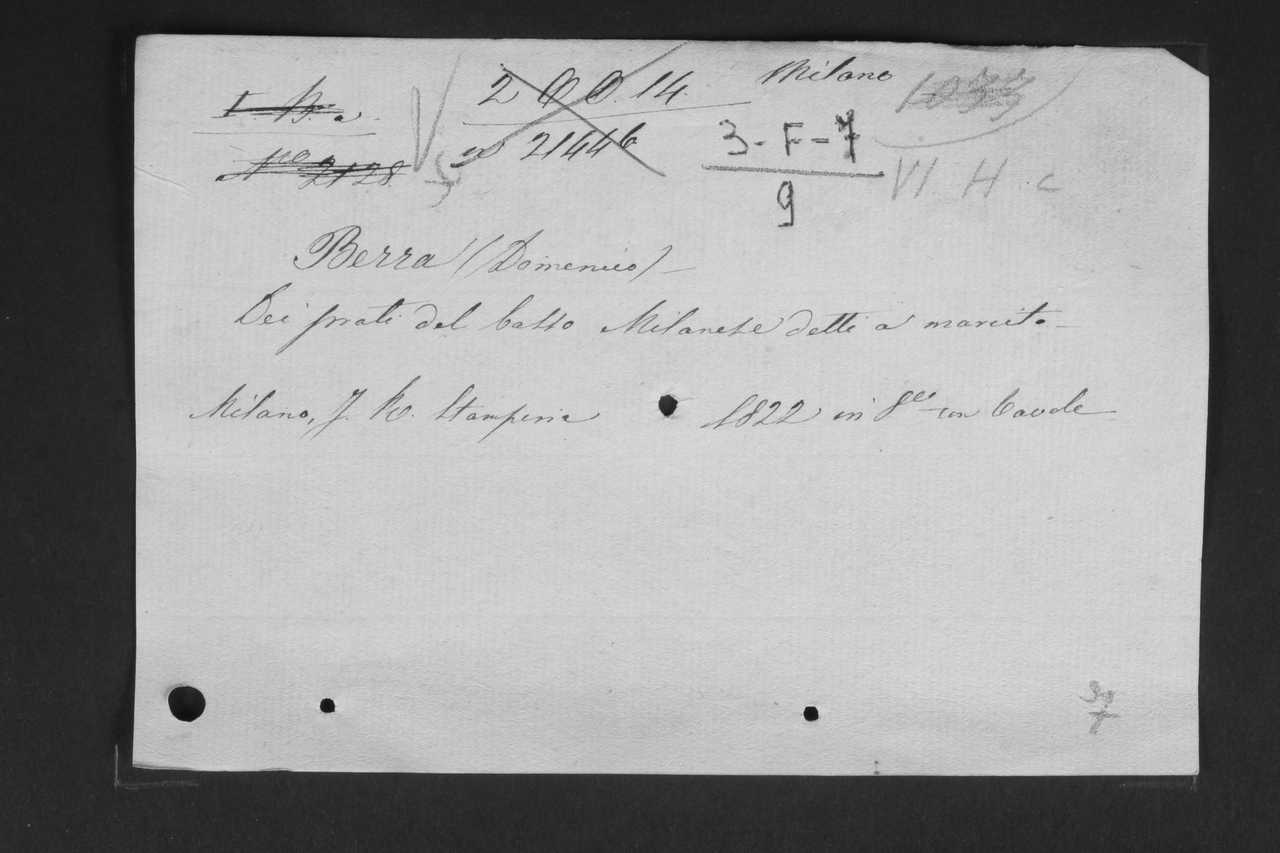 I. B. a. 2 O O. 14. Milano
Nº 2128 nº 21446 3-F-7
9 VI H c
Berra (Domenico)
Dei prati del basso Milanese detti a marcito
Milano, J. R. Stamperia 1822 in 8º con tavole